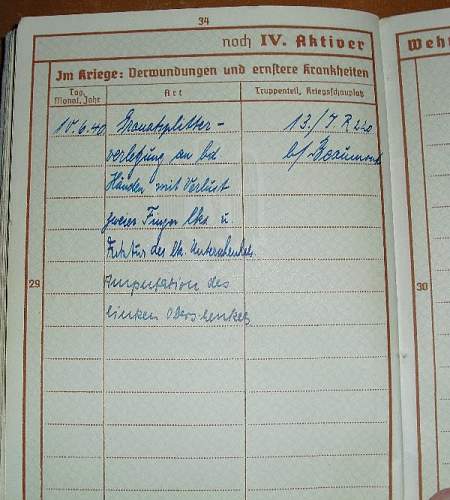 34
noch IV. Aktiver
Wehr
Im Kriege: Verwundungen und ernstere Krankheiten
Tag, Monat, Jahr
Art
Truppenteil, Kriegsschauplatz
10.6.40 Granatsplitter- 13./J.R 220
verlegung an bd b/
Händen mit Verlust
zweier Finger lks u.
des lk. Unterschenkels.
29
Amputation des
30
linken Oberschenkels